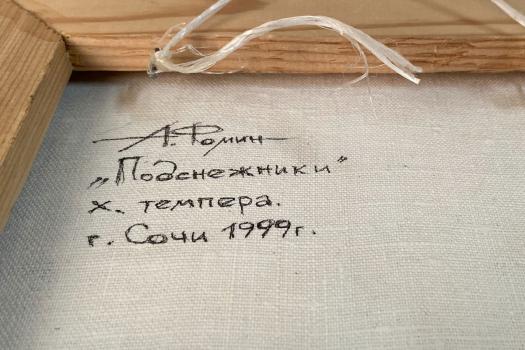 А. Фомин
„Подснежники"
х. темпера.
г. Сочи 1999г.